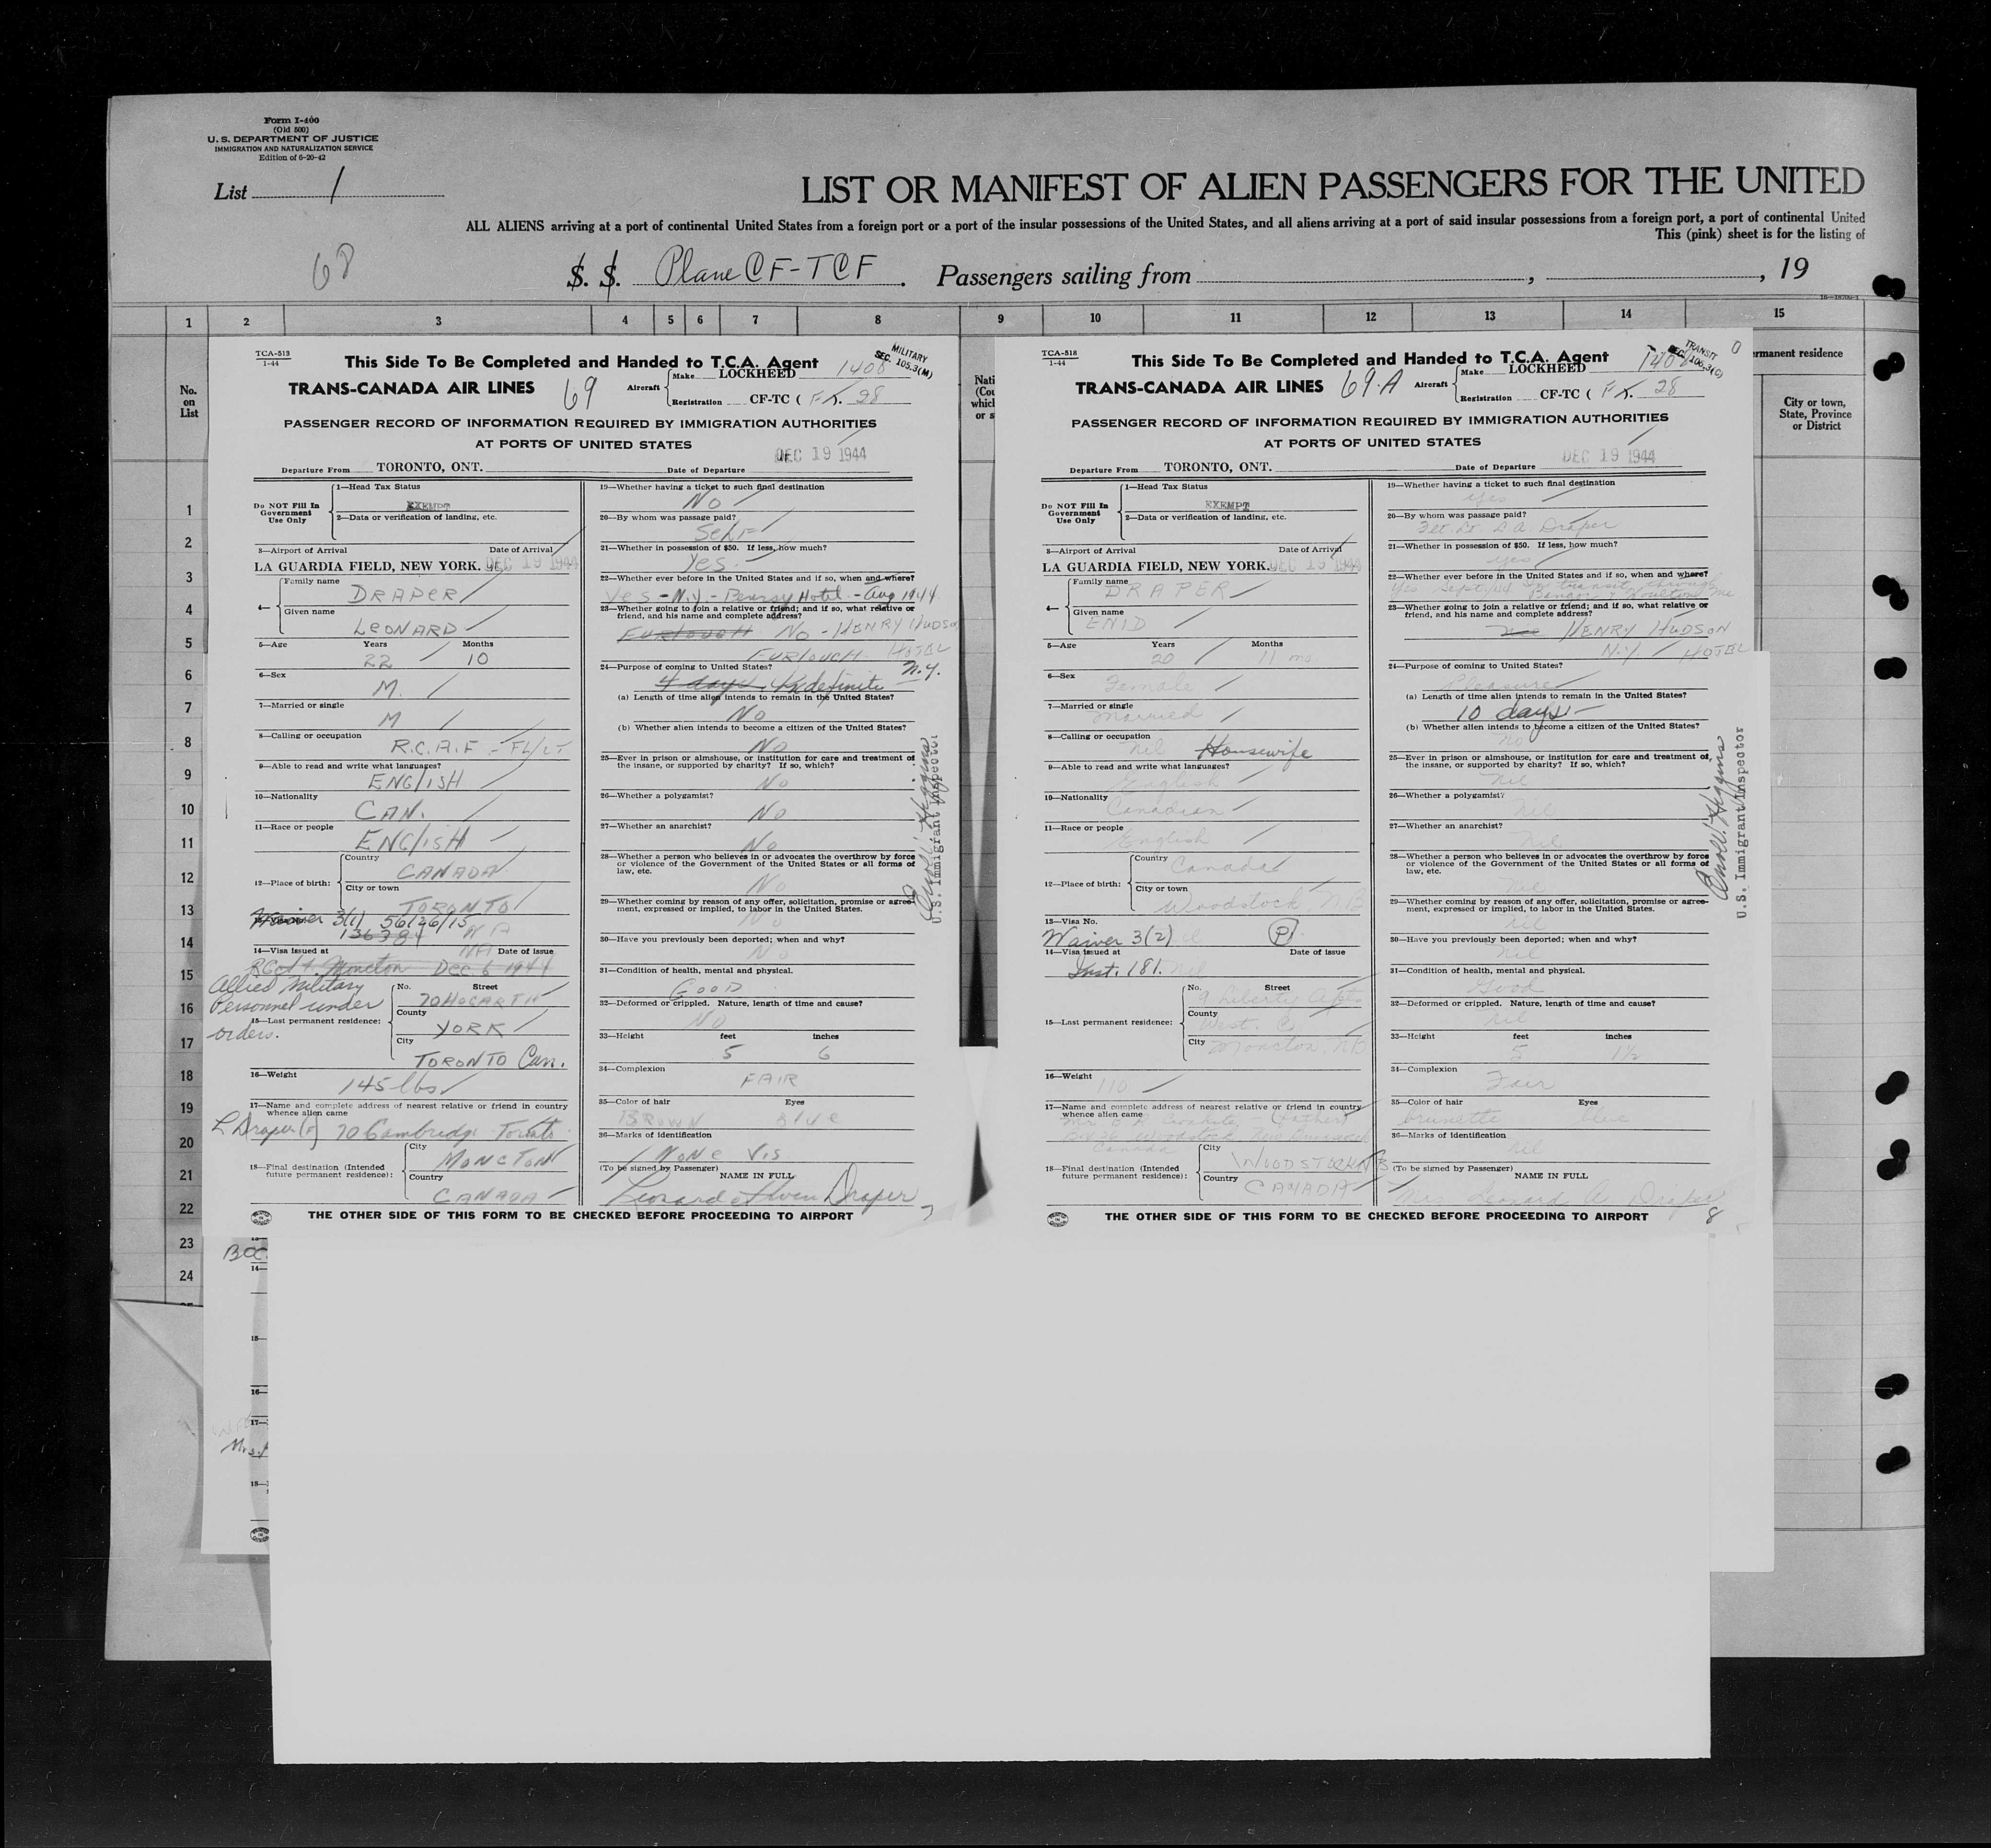 Form I-400
(Old 500)
U. S. DEPARTMENT OF JUSTICE
IMMIGRATION AND NATURALIZATION SERVICE
Edition of 6-20-42
List 1
LIST OR MANIFEST OF ALIEN PASSENGERS FOR THE UNITED
ALL ALIENS arriving at a port of continental United States from a foreign port or a port of the insular possessions of the United States, and all aliens arriving at a port of said insular possessions from a foreign port, a port of continental United
This (pink) sheet is for the listing of
68
S. S. Plane CF-TCF. Passengers sailing from , , 19
1 2 3 4 5 6 7 8 9 10 11 12 13 14 15
No. on List
1
2
3
4
5
6
7
8
9
10
11
12
13
14
15
16
17
18
19
20
21
22
23
24
TCA-513
1-44
This Side To Be Completed and Handed to T.C.A. Agent
MILITARY
SEC. 105.3(M)
TRANS-CANADA AIR LINES 69 Aircraft Make LOCKHEED 1408
Registration CF-TC ( FX. 28
PASSENGER RECORD OF INFORMATION REQUIRED BY IMMIGRATION AUTHORITIES
AT PORTS OF UNITED STATES
Departure From TORONTO, ONT. Date of Departure DEC 19 1944
Do NOT Fill In Government Use Only
1—Head Tax Status
EXEMPT
2—Data or verification of landing, etc.
3—Airport of Arrival Date of Arrival
LA GUARDIA FIELD, NEW YORK. DEC 19 1944
4— Family name DRAPER
Given name LEONARD
5—Age Years 22 Months 10
6—Sex M.
7—Married or single M
8—Calling or occupation R.C.A.F - FL/LT
9—Able to read and write what languages? ENGLISH
10—Nationality CAN.
11—Race or people ENGLISH
12—Place of birth: Country CANADA
City or town TORONTO
Waiver 3(1) 56126/15
136384 NA
14—Visa issued at NA Date of issue
Moncton Dec 6 1944
Allied Military Personnel under orders.
15—Last permanent residence: No. Street 70 HOGARTH
County YORK
City TORONTO Can.
16—Weight 145 lbs
17—Name and complete address of nearest relative or friend in country whence alien came
L Draper (F) 70 Cambridge Toronto
18—Final destination (Intended future permanent residence): City MONCTON
Country CANADA
19—Whether having a ticket to such final destination
No
20—By whom was passage paid?
SELF
21—Whether in possession of $50. If less, how much?
Yes.
22—Whether ever before in the United States and if so, when and where?
Yes - N.Y. - Hotel - Aug 1944
23—Whether going to join a relative or friend; and if so, what relative or friend, and his name and complete address?
FURLOUGH No - HENRY HUDSON
HOTEL
N.Y.
24—Purpose of coming to United States? FURLOUGH
4 days. Indefinite
(a) Length of time alien intends to remain in the United States?
No
(b) Whether alien intends to become a citizen of the United States?
No
25—Ever in prison or almshouse, or institution for care and treatment of the insane, or supported by charity? If so, which?
No
26—Whether a polygamist?
No
27—Whether an anarchist?
No
28—Whether a person who believes in or advocates the overthrow by force or violence of the Government of the United States or all forms of law, etc.
No
29—Whether coming by reason of any offer, solicitation, promise or agreement, expressed or implied, to labor in the United States.
No
30—Have you previously been deported; when and why?
No
31—Condition of health, mental and physical.
GOOD
32—Deformed or crippled. Nature, length of time and cause?
NO
33—Height feet 5 inches 6
34—Complexion FAIR
35—Color of hair BROWN Eyes Blue
36—Marks of identification NONE VIS.
(To be signed by Passenger) NAME IN FULL
Leonard Draper
7
U.S. Immigrant Inspector
THE OTHER SIDE OF THIS FORM TO BE CHECKED BEFORE PROCEEDING TO AIRPORT
TCA-518
1-44
This Side To Be Completed and Handed to T.C.A. Agent
TRANSIT
SEC. 105.3(C)
0
TRANS-CANADA AIR LINES 69-A Aircraft Make LOCKHEED 1408
Registration CF-TC ( FX. 28
PASSENGER RECORD OF INFORMATION REQUIRED BY IMMIGRATION AUTHORITIES
AT PORTS OF UNITED STATES
Departure From TORONTO, ONT. Date of Departure DEC 19 1944
Do NOT Fill In Government Use Only
1—Head Tax Status
EXEMPT
2—Data or verification of landing, etc.
3—Airport of Arrival Date of Arrival
LA GUARDIA FIELD, NEW YORK. DEC 19 1944
4— Family name DRAPER
Given name ENID
5—Age Years 20 Months 11 mo.
6—Sex Female
7—Married or single Married
8—Calling or occupation nil Housewife
9—Able to read and write what languages? English
10—Nationality Canadian
11—Race or people English
12—Place of birth: Country Canada
City or town Woodstock, N.B
13—Visa No.
Waiver 3(2) P
14—Visa issued at Date of issue
Inst. 181. Nil
15—Last permanent residence: No. Street 9 Liberty Apts
County West. C
City Moncton, NB
16—Weight 110
17—Name and complete address of nearest relative or friend in country whence alien came
Canada
18—Final destination (Intended future permanent residence): City WOODSTOCK NB
Country CANADA
19—Whether having a ticket to such final destination
yes
20—By whom was passage paid?
Draper
21—Whether in possession of $50. If less, how much?
yes
22—Whether ever before in the United States and if so, when and where?
Yes Sept/44 In transit through
Bangor & Houlton Me
23—Whether going to join a relative or friend; and if so, what relative or friend, and his name and complete address?
HENRY HUDSON
N.Y. HOTEL
24—Purpose of coming to United States?
Pleasure
(a) Length of time alien intends to remain in the United States?
10 days
(b) Whether alien intends to become a citizen of the United States?
no
25—Ever in prison or almshouse, or institution for care and treatment of, the insane, or supported by charity? If so, which?
nil
26—Whether a polygamist?
nil
27—Whether an anarchist?
nil
28—Whether a person who believes in or advocates the overthrow by force or violence of the Government of the United States or all forms of law, etc.
nil
29—Whether coming by reason of any offer, solicitation, promise or agreement, expressed or implied, to labor in the United States.
nil
30—Have you previously been deported; when and why?
nil
31—Condition of health, mental and physical.
Good
32—Deformed or crippled. Nature, length of time and cause?
nil
33—Height feet 5 inches 1½
34—Complexion Fair
35—Color of hair brunette Eyes blue
36—Marks of identification nil
(To be signed by Passenger) NAME IN FULL
Mrs Leonard A. Draper
8
U.S. Immigrant Inspector
THE OTHER SIDE OF THIS FORM TO BE CHECKED BEFORE PROCEEDING TO AIRPORT
ermanent residence
City or town, State, Province or District
14—
15—
16—
17—
18—